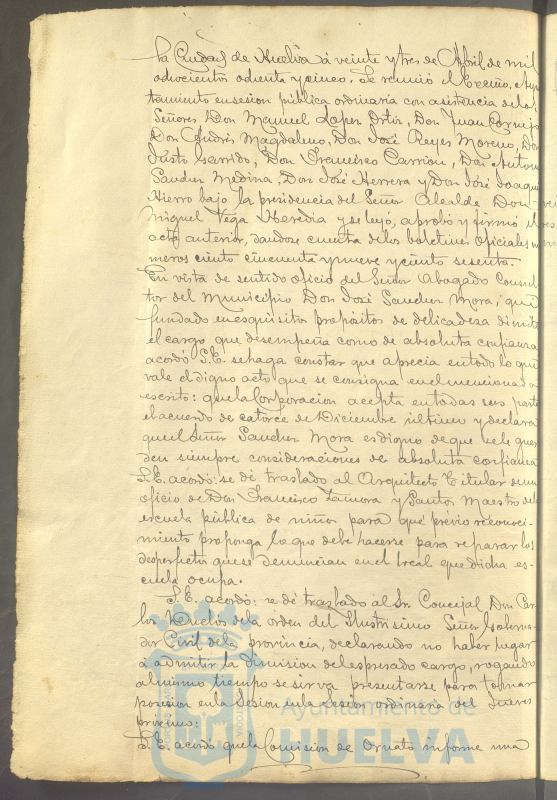 la Ciudad de Huelva á veinte y tres de Abril de mil
ochocientos ochenta y cinco. Se reunió el Excmo. Ayun
tamiento en sesion pública ordinaria con asistencia de los
Señores Don Manuel Lopez Ortiz, Don Juan Cornejo
Don Andrés Magdaleno, Don José Reyes Moreno, Don
Justo Garrido, Don Francisco Carrion, Don Antonio
Sanchez Medina, Don José Herrera y Don José Joaquin
Hierro bajo la presidencia del Señor Alcalde Don
Miguel Vega Heredia y se leyó, aprobó y firmó el
acta anterior, dandose cuenta de los boletines oficiales nú
meros ciento cincuenta y nueve y ciento sesenta.
En vista de sentido oficio del Señor Abogado Consul
tor del Municipio Don José Sanchez Mora, que
fundado en esquisitos propósitos de delicadesa dimite
el cargo que desempeña como de absoluta confianza
acordó S.E. se haga constar que aprecia en todo lo que
vale el digno acto que se consigna en el mencionado
escrito: que la Corporacion acepta en todas sus partes
el acuerdo de catorce de Diciembre último y declara
que el Señor Sanchez Mora es digno de que se le guar
den siempre consideraciones de absoluta confianza
S.E. acordó: se dé traslado al Arquitecto Titular de un
oficio de Don Francisco Zamora y Santos Maestro de la
escuela pública de niños para que previo reconoci-
miento proponga lo que debe hacerse para reparar los
desperfectos que se denuncian en el local que dicha es-
cuela ocupa.
S.E. acordó: se dé traslado al Sr. Concejal Don Car
los Duclos de la orden del Ilustrisimo Señor Goberna-
dor Civil de la provincia, declarando no haber lugar
a admitir la dimision del espresado cargo, rogando
al mismo tiempo se sirva presentarse para tomar
posesion en la Sesion en la Sesion ordinaria del Jueves
proximo:
S.E. acordó que la Comision de Ornato informe una
Ayuntamiento de
HUELVA